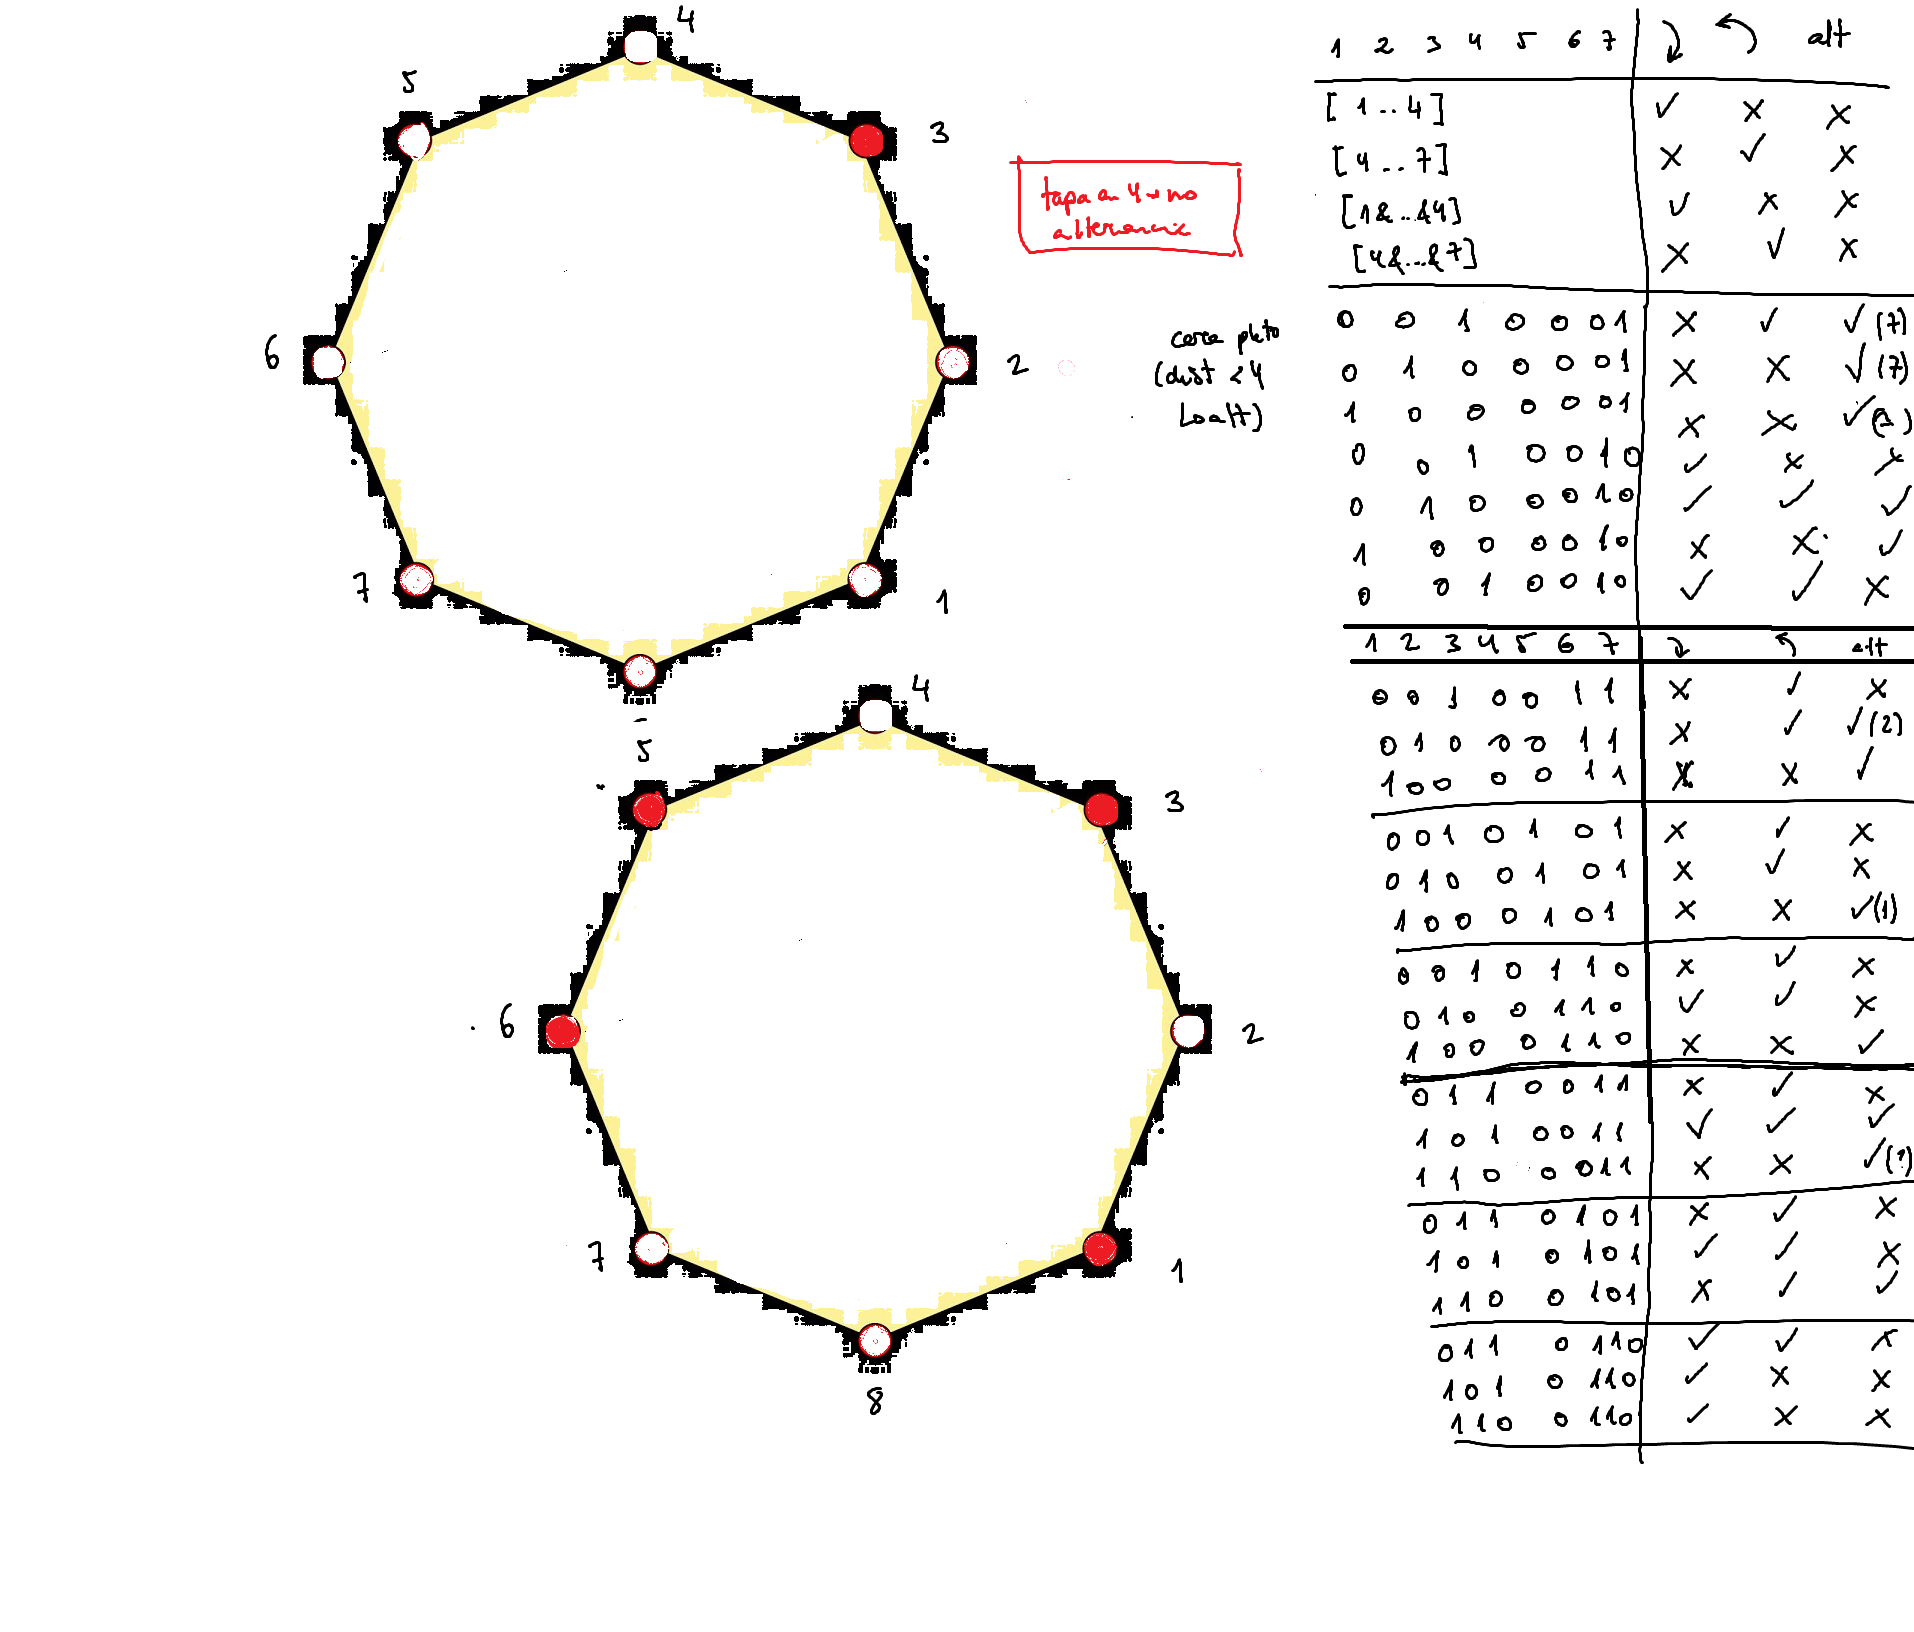 4
5
3
6
2
7
1
5
4
5
3
6
2
7
1
8
tapa en 4 → no
cerca plato
(dist < 4
1 2 3 4 5 6 7 ↷ ↶ alt
[ 1 .. 4 ] ✓ ✗ ✗
[ 4 .. 7 ] ✗ ✓ ✗
[1&...&4] ✓ ✗ ✗
[4&...&7] ✗ ✓ ✗
0 0 1 0 0 0 1 ✗ ✓ ✓ (7)
0 1 0 0 0 0 1 ✗ ✗ ✓ (7)
1 0 0 0 0 0 1 ✗ ✗ ✓
0 0 1 0 0 1 0 ✓ ✗ ✗
0 1 0 0 0 1 0 ✓ ✓ ✓
1 0 0 0 0 1 0 ✗ ✗ ✓
0 0 1 0 0 1 0 ✓ ✓ ✗
1 2 3 4 5 6 7 ↷ ↶ alt
0 0 1 0 0 1 1 ✗ ✓ ✗
0 1 0 0 0 1 1 ✗ ✓ ✓ (2)
1 0 0 0 0 1 1 ✗ ✗ ✓
0 0 1 0 1 0 1 ✗ ✓ ✗
0 1 0 0 1 0 1 ✗ ✓ ✗
1 0 0 0 1 0 1 ✗ ✗ ✓ (1)
0 0 1 0 1 1 0 ✗ ✓ ✗
0 1 0 0 1 1 0 ✓ ✓ ✗
1 0 0 0 1 1 0 ✗ ✗ ✓
0 1 1 0 0 1 1 ✗ ✓ ✗
1 0 1 0 0 1 1 ✓ ✓ ✓
1 1 0 0 0 1 1 ✗ ✗ ✓ (?)
0 1 1 0 1 0 1 ✗ ✓ ✗
1 0 1 0 1 0 1 ✓ ✓ ✗
1 1 0 0 1 0 1 ✗ ✓ ✓
0 1 1 0 1 1 0 ✓ ✓ ✗
1 0 1 0 1 1 0 ✓ ✗ ✗
1 1 0 0 1 1 0 ✓ ✗ ✗